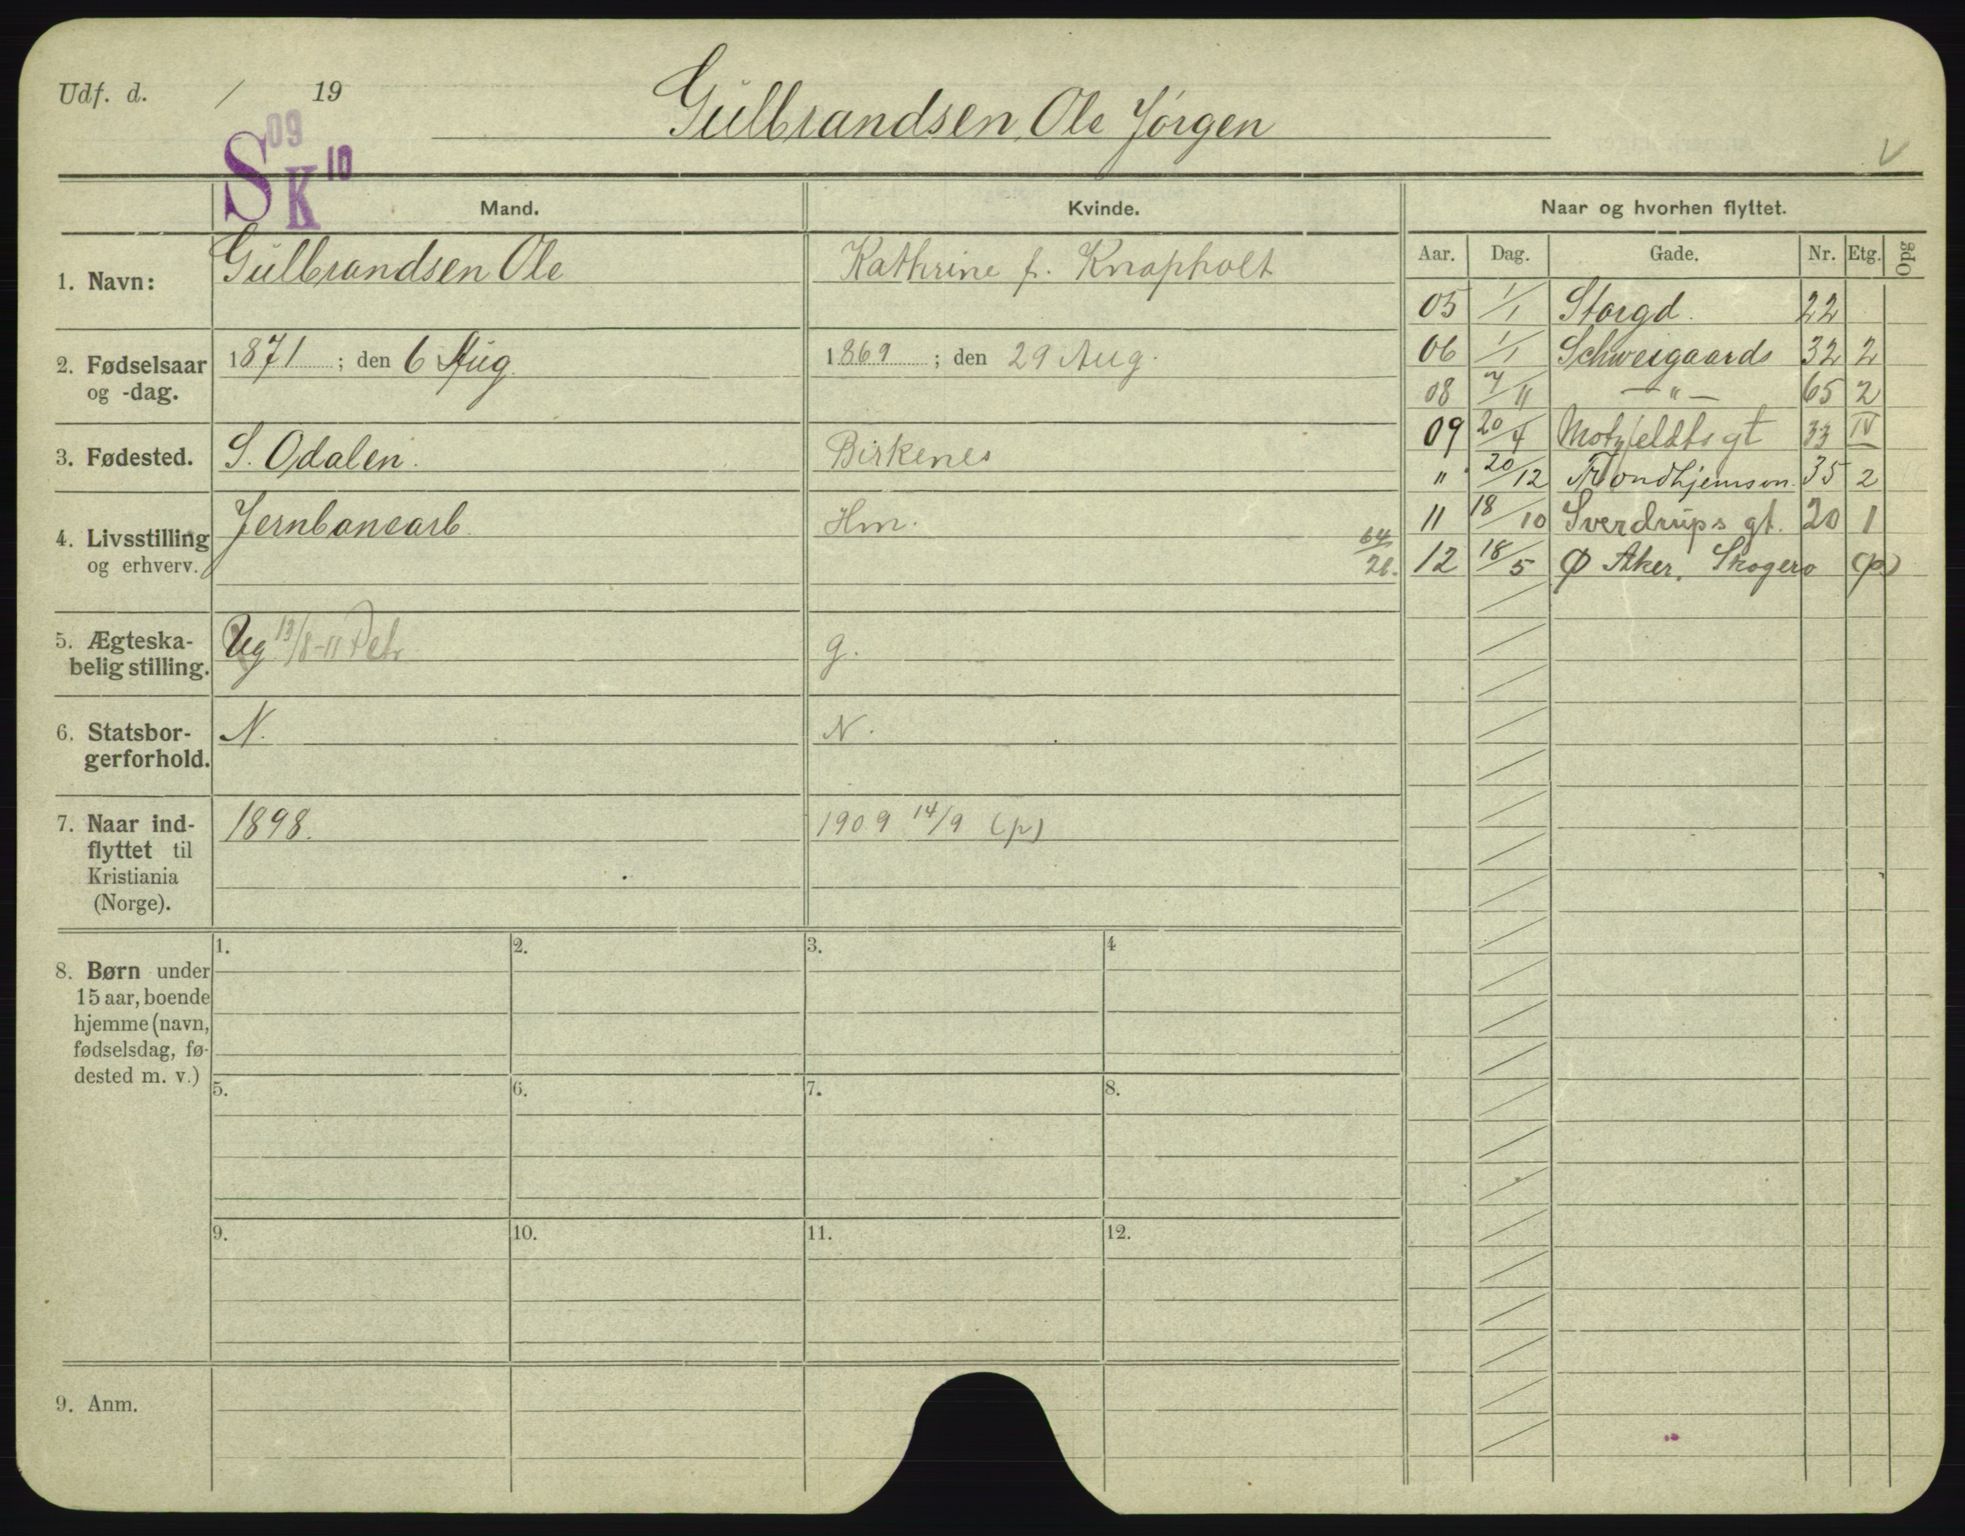 Udf. d. / 19
Gulbrandsen, Ole Jørgen
09
S K 10
V
Mand.
Kvinde.
Naar og hvorhen flyttet.
Aar. Dag. Gade. Nr. Etg. Opg
1. Navn:
Gulbrandsen Ole
Kathrine f. Knapholt
2. Fødselsaar
og -dag.
1871 ; den 6 Aug.
1869 ; den 29 Aug.
3. Fødested.
S. Odalen.
Birkenes
4. Livsstilling
og erhverv.
Jernbanearb.
Hm.
64/26.
5. Ægteska-
belig stilling.
Ug 13/8-11
g.
6. Statsbor-
gerforhold.
N.
N.
7. Naar ind-
flyttet til
Kristiania
(Norge).
1898.
1909 14/9 (p)
05 1/1 Storgd. 22
06 1/1 Schweigaards 32 2
08 7/11 — " — 65 2
09 20/4 Motzfeldts gt 33 IV
" 20/12 Trondhjemsvn. 35 2
11 18/10 Sverdrups gt. 20 1
12 18/5 Ø Aker. Skogero (p)
8. Børn under
15 aar, boende
hjemme (navn,
fødselsdag, fø-
dested m. v.)
1. 2. 3. 4
5. 6. 7. 8.
9. 10. 11. 12.
9. Anm.